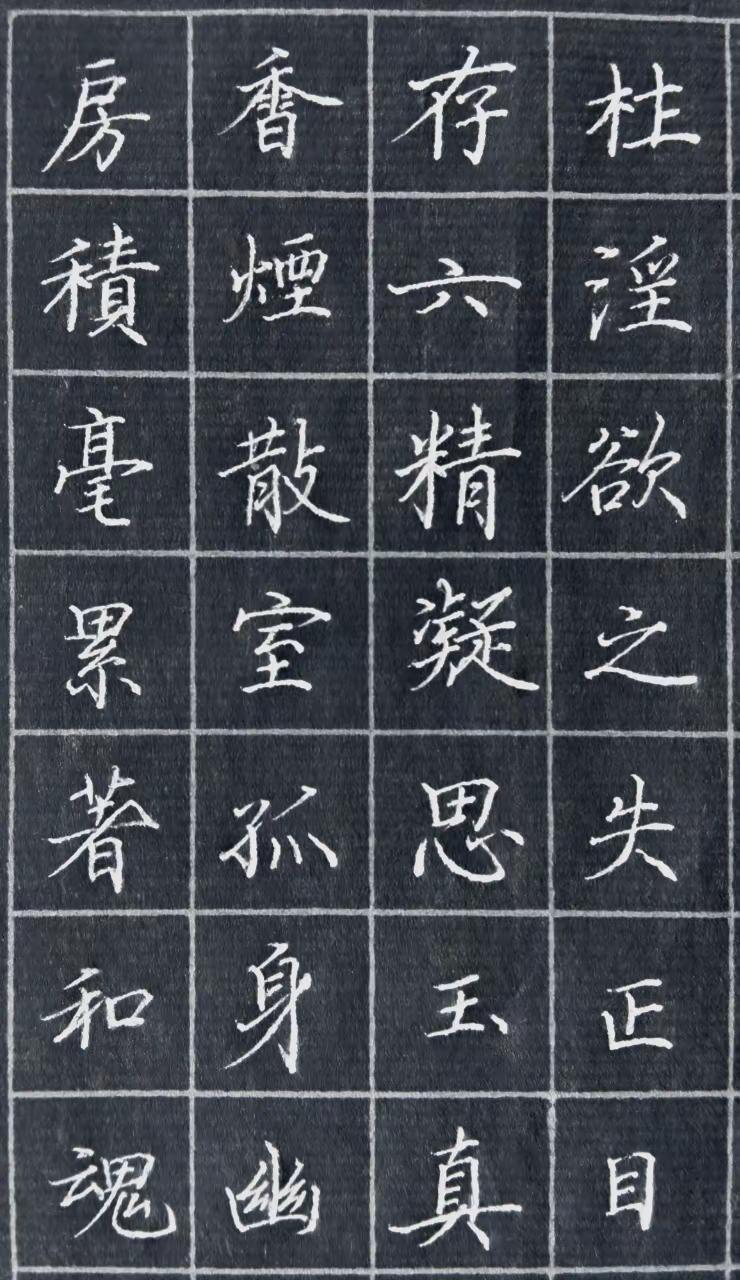 柱淫欲之失正目
存六精凝思玉真
香煙散室孤身幽
房積毫累著和魂